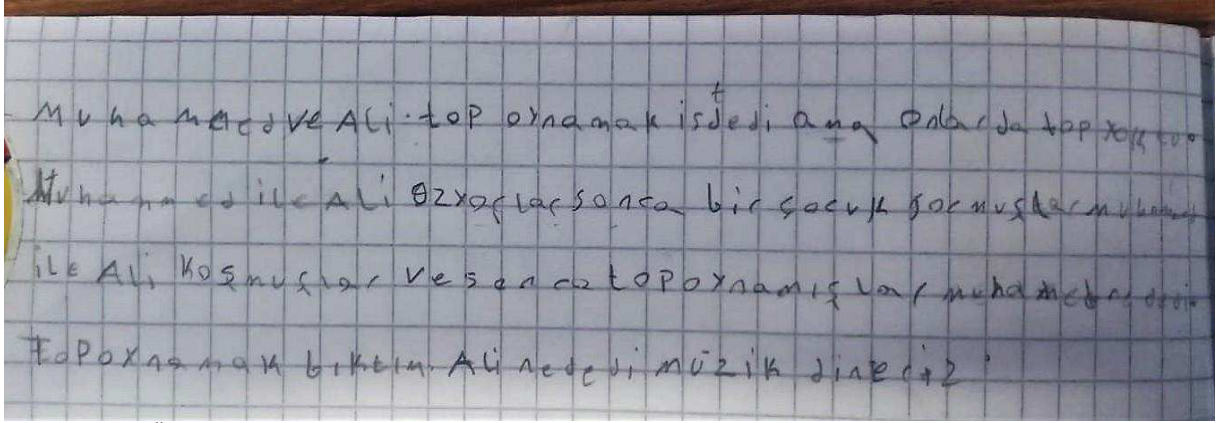 Muhammed ve Ali. top oynamak istdedi ama onlarda top yoktu
Muhammed ile Ali özyorlar sonra bir çocuk görmuşlar muhammed
ile Ali koşmuşlar ve sonra top oynamışlar muhamed
top oynamak bıktım. Ali nededi müzik dineriz